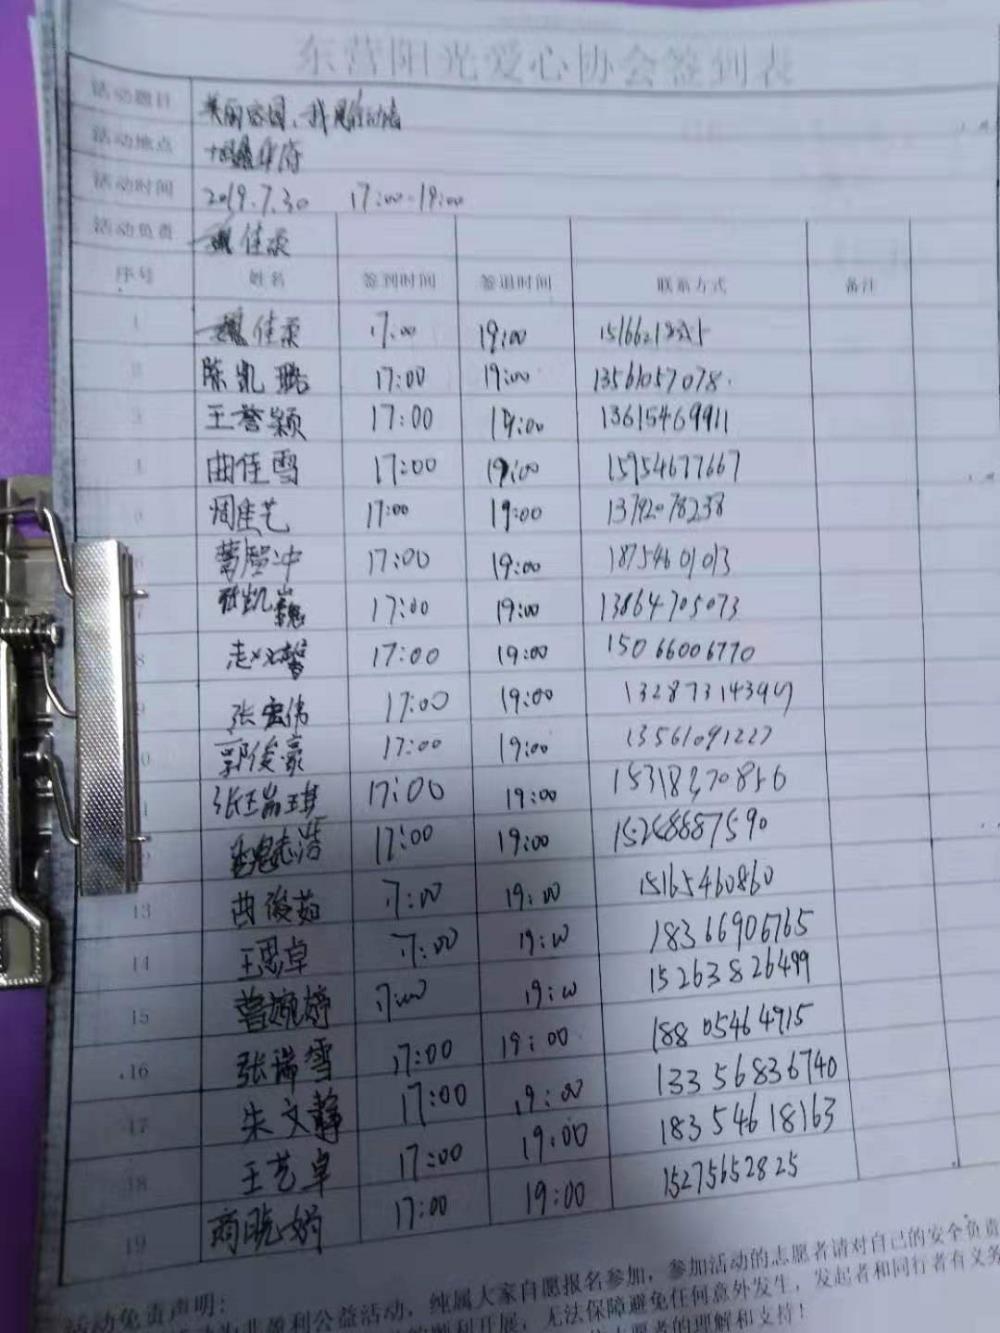 东营阳光爱心协会签到表
活动题目 美丽家园、我是行动者
活动地点 华府
活动时间 2019.7.30 17:00-19:00
活动负责 魏佳
序号 姓名 签到时间 签退时间 联系方式 备注
1 魏佳 17:00 19:00
2 陈凯璐 17:00 19:00 13561057078
3 王誉颖 17:00 19:00 13615469911
4 曲佳雪 17:00 19:00 15954677667
5 周佳艺 17:00 19:00 13792078238
6 17:00 19:00 18754601013
7 张凯 17:00 19:00 13864705073
8 赵文馨 17:00 19:00 15066006770
9 张宏伟 17:00 19:00
10 郭俊豪 17:00 19:00 13561091227
11 张玉 17:00 19:00
12 魏志浩 17:00 19:00 15268687590
13 曲俊茹 17:00 19:00 15165460860
14 王思卓 17:00 19:00 18366906765
15 曹婉婷 17:00 19:00 15263826499
16 张瑞雪 17:00 19:00 18805464915
17 朱文静 17:00 19:00 13356836740
18 王艺卓 17:00 19:00 18354618163
19 商晓娟 17:00 19:00 15275652825
活动免责声明：
非盈利公益活动，纯属大家自愿报名参加，参加活动的志愿者请对自己的安全负责
顺利开展，无法保障避免任何意外发生，发起者和同行者有义务
志愿者的理解和支持！